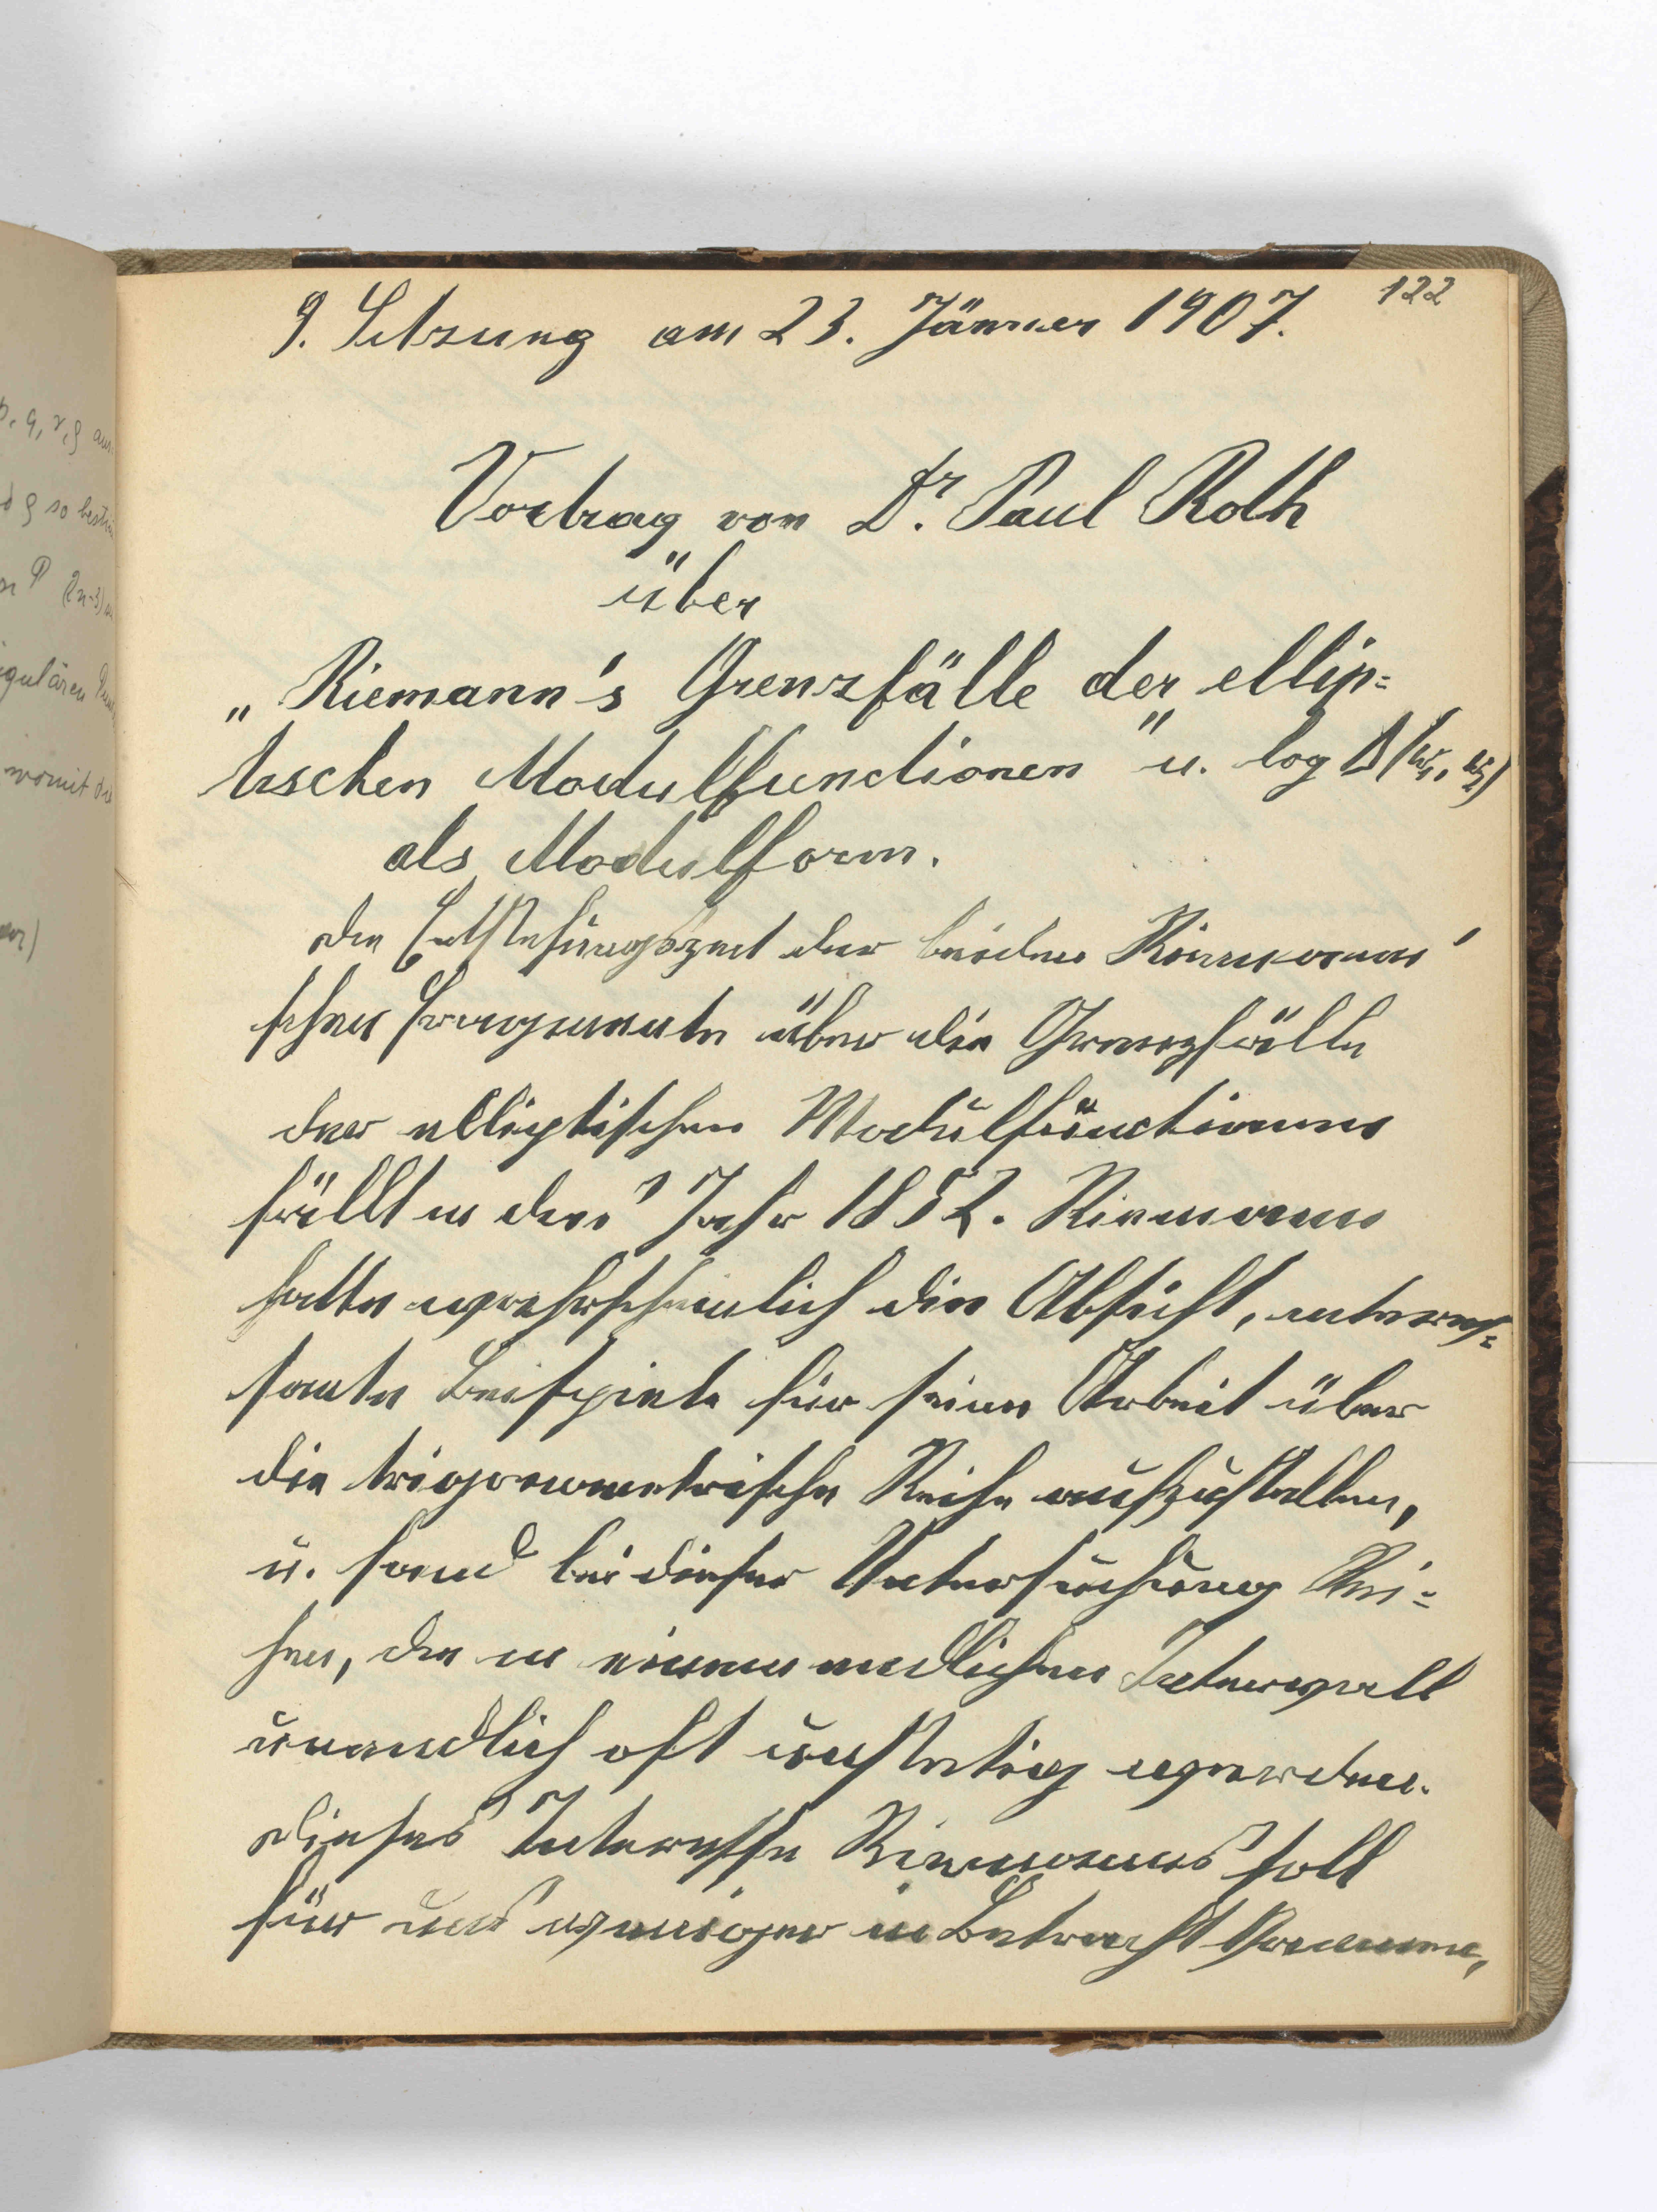 122
9. Sitzung am 23. Jänner 1907.
Vortrag von Dr. Paul Roth
über
„Riemann's Grenzfälle der ellip=
tischen Modulfunctionen" u. log Δ(ω₁, ω₂)
als Modulform.
Die Entstehungszeit der beiden Riemann'
schen Fragmente über die Grenzfälle
der elliptischen Modulfunctionen
fällt in das Jahr 1852. Riemann
hatte wahrscheinlich die Absicht, interes=
sante Beispiele für seine Arbeit über
die trigonometrische Reihe aufzustellen,
u. fand bei dieser Untersuchung Rei=
hen, die in einem endlichen Intervall
unendlich oft unstetig werden.
Dieses Interesse Riemanns soll
für uns weniger in Betracht kommen,
p, q, r, ϱ
ϱ so
(2n-3)
womit die